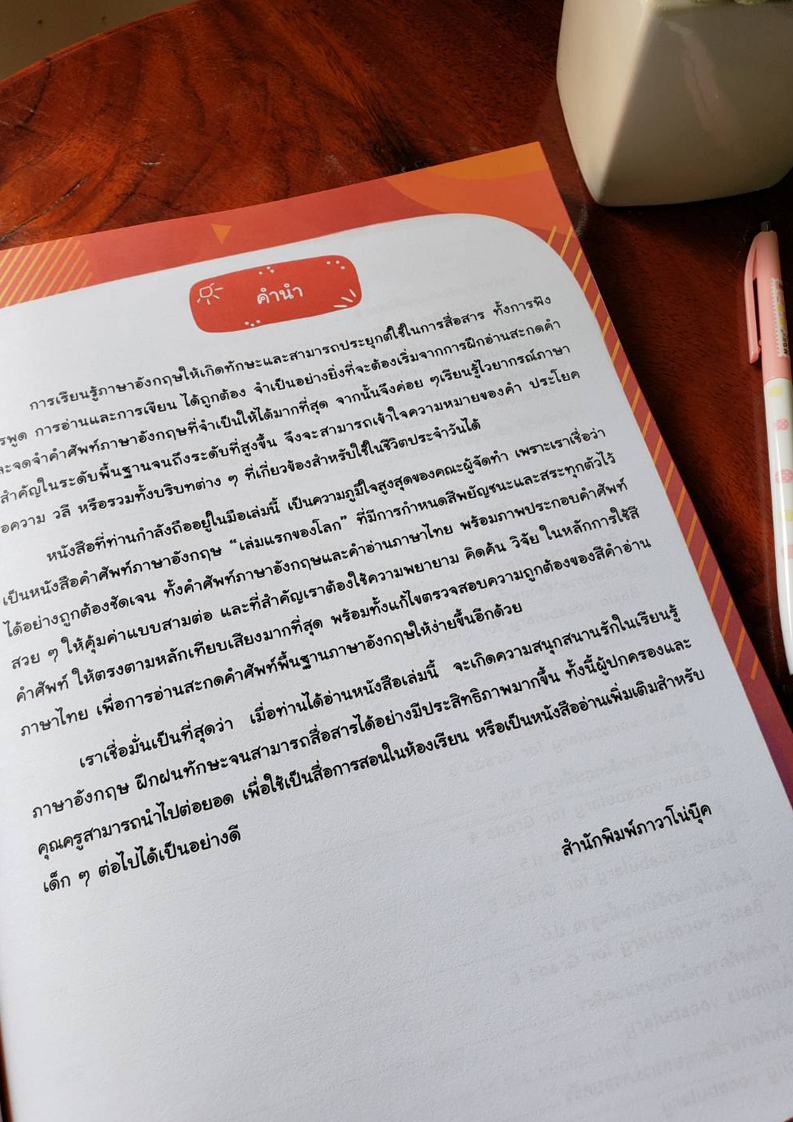 คำนำ
การเรียนรู้ภาษาอังกฤษให้เกิดทักษะและสามารถประยุกต์ใช้ในการสื่อสาร ทั้งการฟัง
รพูด การอ่านและการเขียน ได้ถูกต้อง จำเป็นอย่างยิ่งที่จะต้องเริ่มจากการฝึกอ่านสะกดคำ
ละจดจำคำศัพท์ภาษาอังกฤษที่จำเป็นให้ได้มากที่สุด จากนั้นจึงค่อย ๆเรียนรู้ไวยากรณ์ภาษา
สำคัญในระดับพื้นฐานจนถึงระดับที่สูงขึ้น จึงจะสามารถเข้าใจความหมายของคำ ประโยค
อความ วลี หรือรวมทั้งบริบทต่าง ๆ ที่เกี่ยวข้องสำหรับใช้ในชีวิตประจำวันได้
หนังสือที่ท่านกำลังถืออยู่ในมือเล่มนี้ เป็นความภูมิใจสูงสุดของคณะผู้จัดทำ เพราะเราเชื่อว่า
เป็นหนังสือคำศัพท์ภาษาอังกฤษ “เล่มแรกของโลก” ที่มีการกำหนดสีพยัญชนะและสระทุกตัวไว้
ได้อย่างถูกต้องชัดเจน ทั้งคำศัพท์ภาษาอังกฤษและคำอ่านภาษาไทย พร้อมภาพประกอบคำศัพท์
สวย ๆ ให้คุ้มค่าแบบสามต่อ และที่สำคัญเราต้องใช้ความพยายาม คิดค้น วิจัย ในหลักการใช้สี
คำศัพท์ ให้ตรงตามหลักเทียบเสียงมากที่สุด พร้อมทั้งแก้ไขตรวจสอบความถูกต้องของสีคำอ่าน
ภาษาไทย เพื่อการอ่านสะกดคำศัพท์พื้นฐานภาษาอังกฤษให้ง่ายขึ้นอีกด้วย
เราเชื่อมั่นเป็นที่สุดว่า เมื่อท่านได้อ่านหนังสือเล่มนี้ จะเกิดความสนุกสนานรักในเรียนรู้
ภาษาอังกฤษ ฝึกฝนทักษะจนสามารถสื่อสารได้อย่างมีประสิทธิภาพมากขึ้น ทั้งนี้ผู้ปกครองและ
คุณครูสามารถนำไปต่อยอด เพื่อใช้เป็นสื่อการสอนในห้องเรียน หรือเป็นหนังสืออ่านเพิ่มเติมสำหรับ
เด็ก ๆ ต่อไปได้เป็นอย่างดี
สำนักพิมพ์ภาวาโน่บุ๊ค